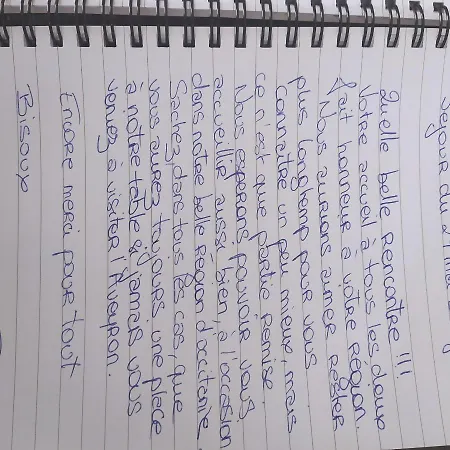 Séjour du
Quelle belle rencontre !!!
Votre accueil à tous les deux
fait honneur à votre Région.
Nous aurions aimer rester
plus longtemp pour vous
connaitre un peu mieux, mais
ce n'est que partie remise.
Nous esperons pouvoir vous
accueillir aussi bien, à l'occasion
dans notre belle Région d'occitanie.
Sachez, dans tous les cas, que
vous aurez toujours une place
à notre table si jamais vous
venez à visiter l'Aveyron.
Encore merci pour tout
Bisoux